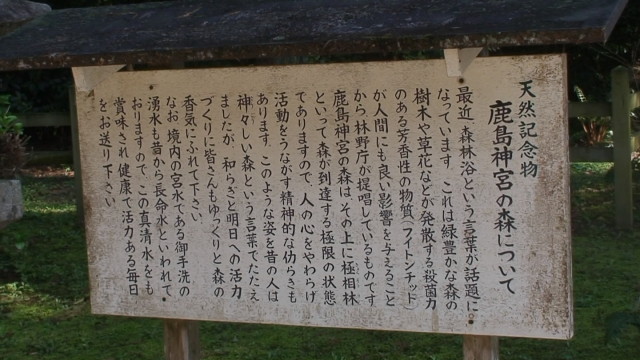 天然記念物
鹿島神宮の森について
最近 森林浴という言葉が話題に
なっています。これは緑豊かな森の
樹木や草花などが発散する殺菌力
のある芳香性の物質(フイトンチッド)
が人間にも良い影響を与えること
から林野庁が提唱しているものです
鹿島神宮の森はその上に極相林
といって森が到達する極限の状態
でありますので、人の心をやわらげ
活動をうながす精神的な仂らきも
あります。このような姿を昔の人は
神々しい森という言葉でたたえ
ましたが、和らぎと明日への活力
づくりに皆さんもゆっくりと森の
香気にふれて下さい。
なお 境内の宮水である御手洗の
湧水も昔から長命水といわれて
おりますので、この真清水をも
賞味され健康で活力ある毎日
をお送り下さい。